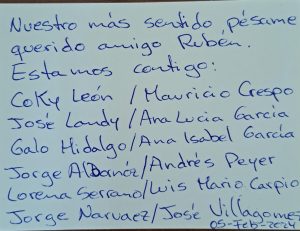 Nuestro más sentido pésame
querido amigo Rubén.
Estamos contigo:
Coky León / Mauricio Crespo
José Landy / Ana Lucia Garcia
Galo Hidalgo / Ana Isabel García
Jorge Albornóz / Andrés Peyer
Lorena Serrano / Luis Mario Carpio
Jorge Narvaez / José Villagomez
05-Feb-2024